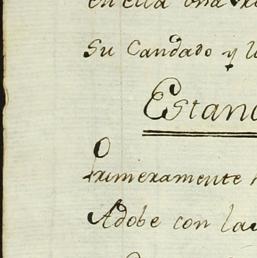 en ella una
Su Candado y
Estan
Primeramente
Adobe con la